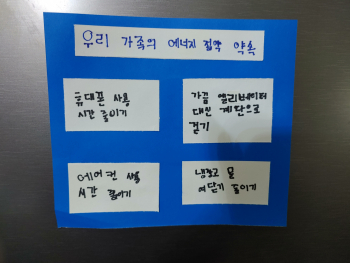 우리 가족의 에너지 절약 약속
휴대폰 사용
시간 줄이기
가끔 엘리베이터
대신 계단으로
걷기
에어컨
시간 줄이기
냉장고 문
여닫기 줄이기